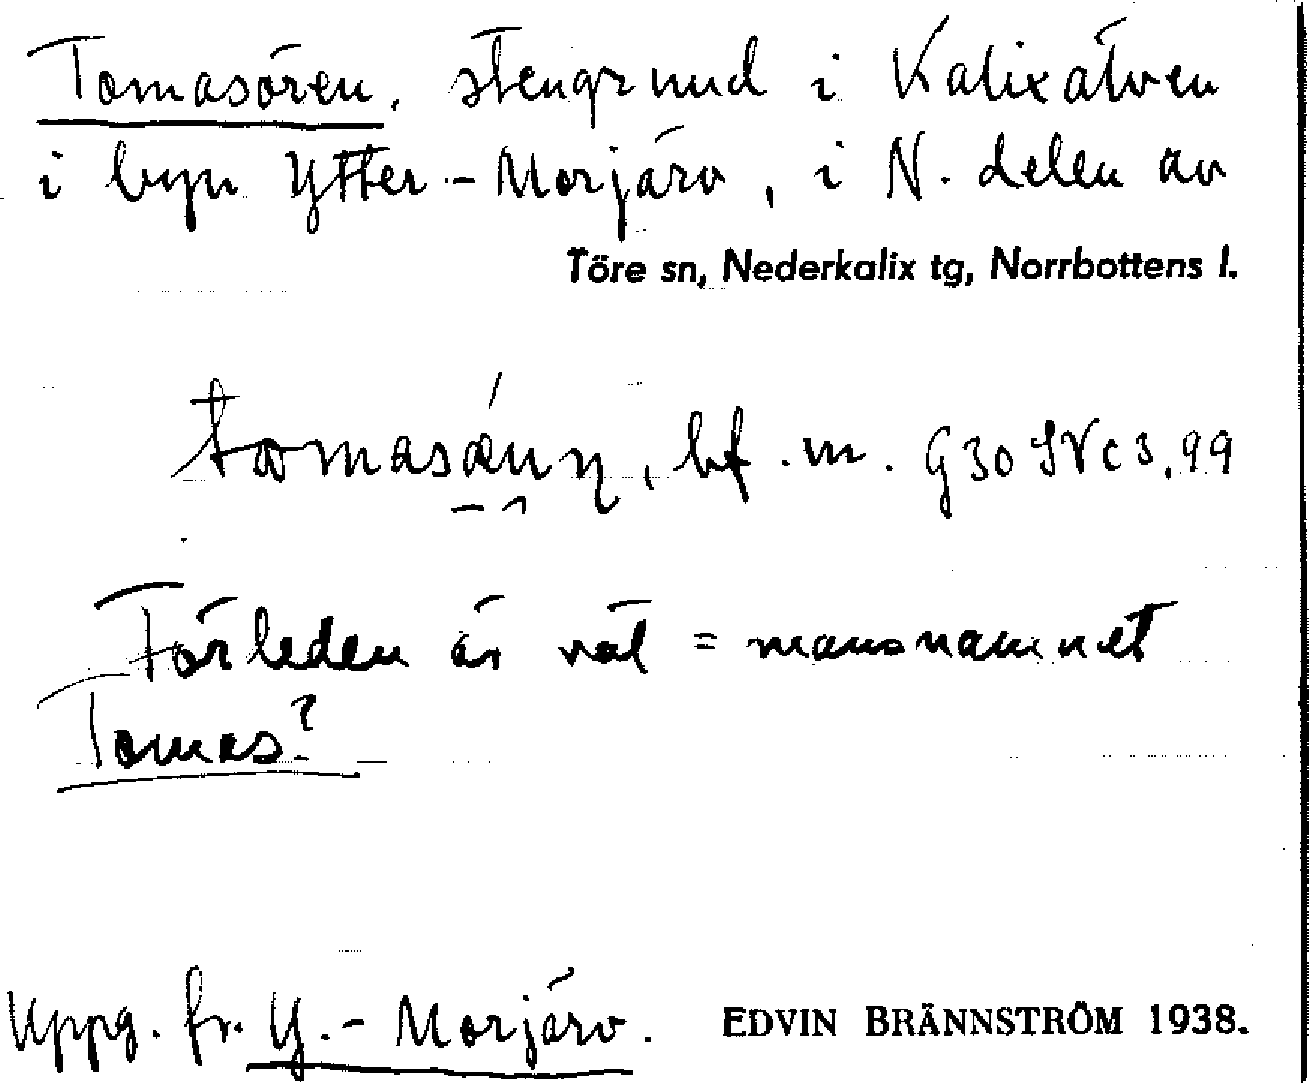 Tomasören, stengrund i Kalixälven
i byn Ytter-Morjärv, i N. delen av
Töre sn, Nederkalix tg, Norrbottens l.
bf. m. G30 SVc3,99
Förleden är väl = mansnamnet
Tomas?
Uppg. fr. Y.-Morjärv. EDVIN BRÄNNSTRÖM 1938.